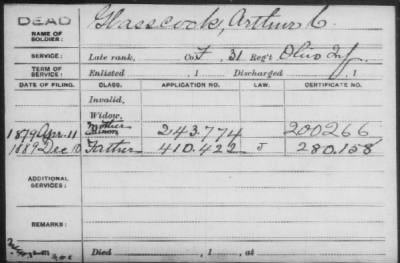 DEAD
NAME OF SOLDIER: Glasscock, Arthur C.
SERVICE: Late rank, Co. F, 31 Reg't Ohio Inf.
TERM OF SERVICE: Enlisted , 1 Discharged , 1
DATE OF FILING. CLASS. APPLICATION NO. LAW. CERTIFICATE NO.
Invalid,
Widow,
Mother
1879 Apr. 11 Minor, 243.774 200266
1889 Dec 10 Father 410.422 J 280.158
ADDITIONAL SERVICES:
REMARKS:
Died , 1 , at